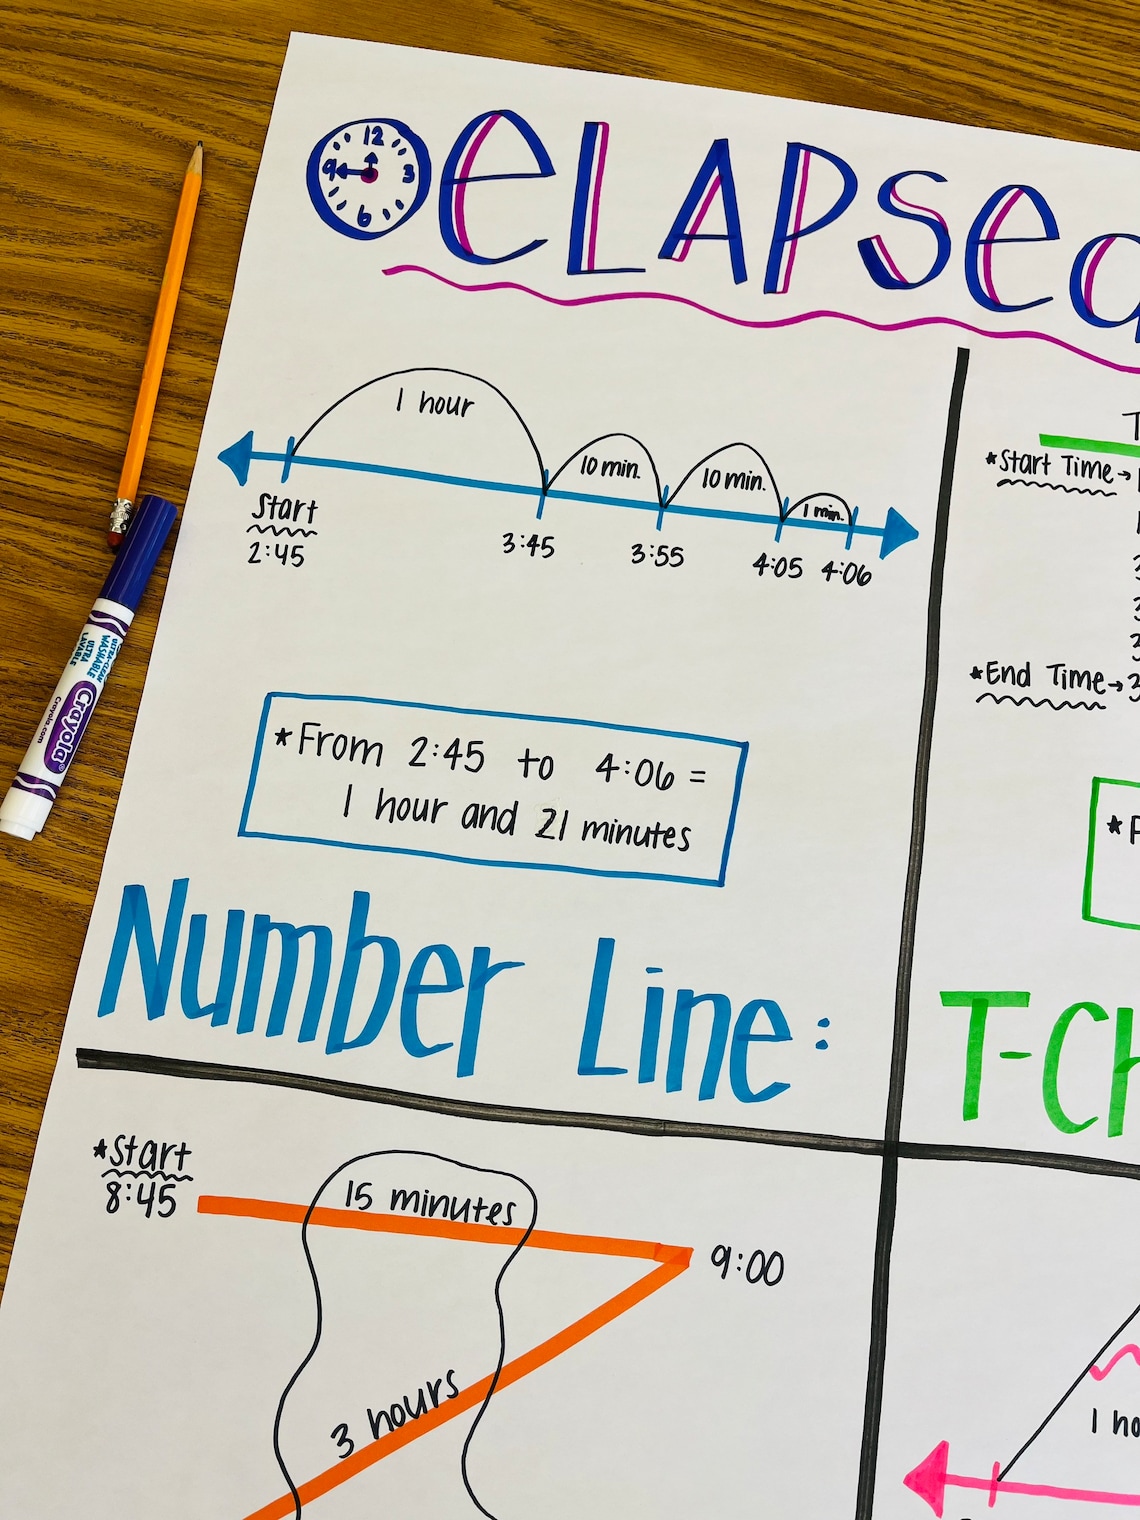 12
9
3
6
ELAPSed
1 hour
10 min.
10 min.
1 min.
Start
2:45
3:45
3:55
4:05
4:06
*From 2:45 to 4:06 =
1 hour and 21 minutes
Number Line:
*Start Time→
*End Time→3
*F
T-Ch
*Start
8:45
15 minutes
9:00
3 hours
1 ho
ULTRA-CLEAN
WASHABLE
ULTRA
LAVABLE
Crayola
Crayola.com